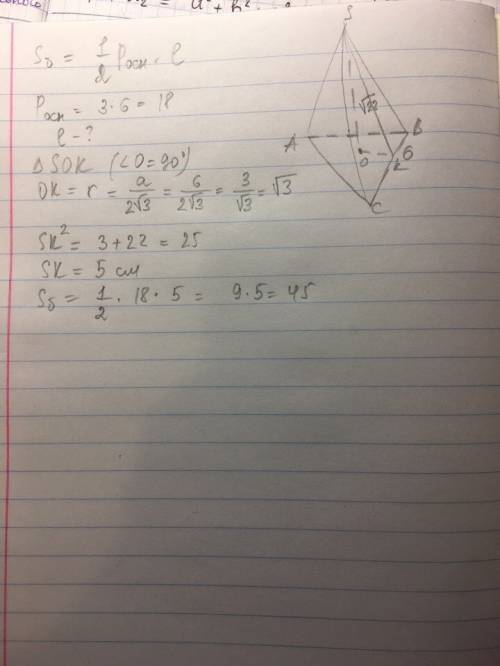 Sб = 1/2 Pосн · l
Pосн = 3·6 = 18
l - ?
Δ SOK (∠O = 90°)
OK = r = a/2√3 = 6/2√3 = 3/√3 = √3
SK² = 3 + 22 = 25
SK = 5 см
Sб = 1/2 · 18 · 5 = 9·5 = 45
S
√22
A
B
O
6
C